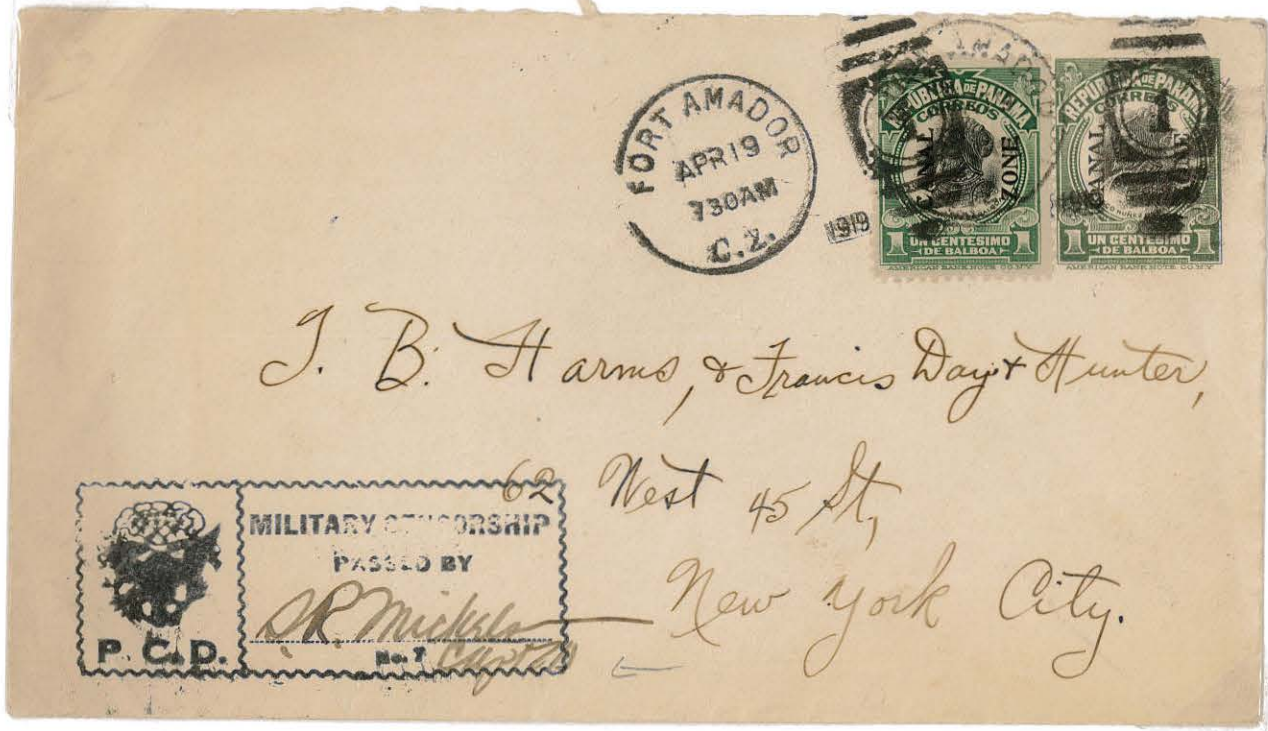 FORT AMADOR
APR 19
730AM
C.Z.
1919
REPUBLICA DE PANAMA
CORREOS
CANAL ZONE
1 UN CENTESIMO 1
DE BALBOA
AMERICAN BANK NOTE CO. N.Y.
REPUBLICA DE PANAMA
CORREOS
CANAL ZONE
1 UN CENTESIMO 1
DE BALBOA
AMERICAN BANK NOTE CO. N.Y.
T. B. Harms, & Francis Day & Hunter,
62 West 45 St,
New York City.
MILITARY CENSORSHIP
PASSED BY
No. 7
P. C. D.